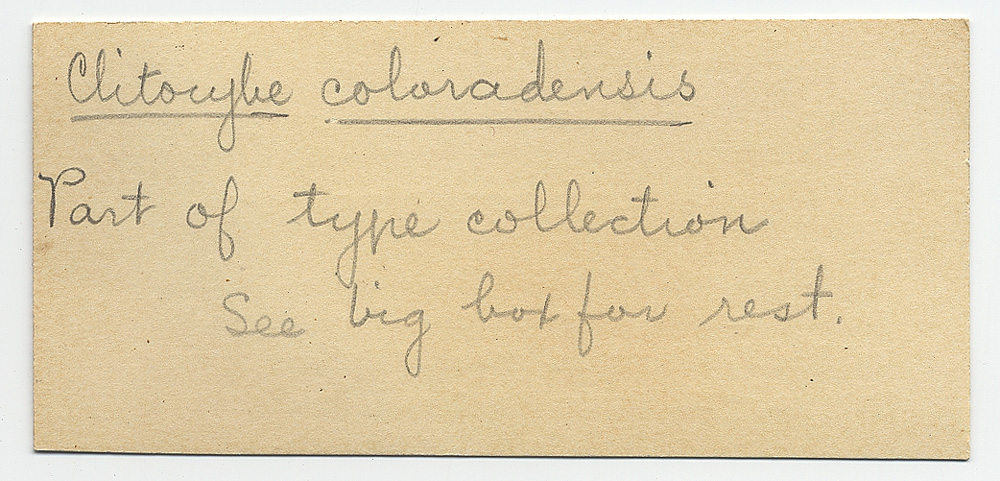 Clitocybe coloradensis
Part of type collection
See big box for rest.